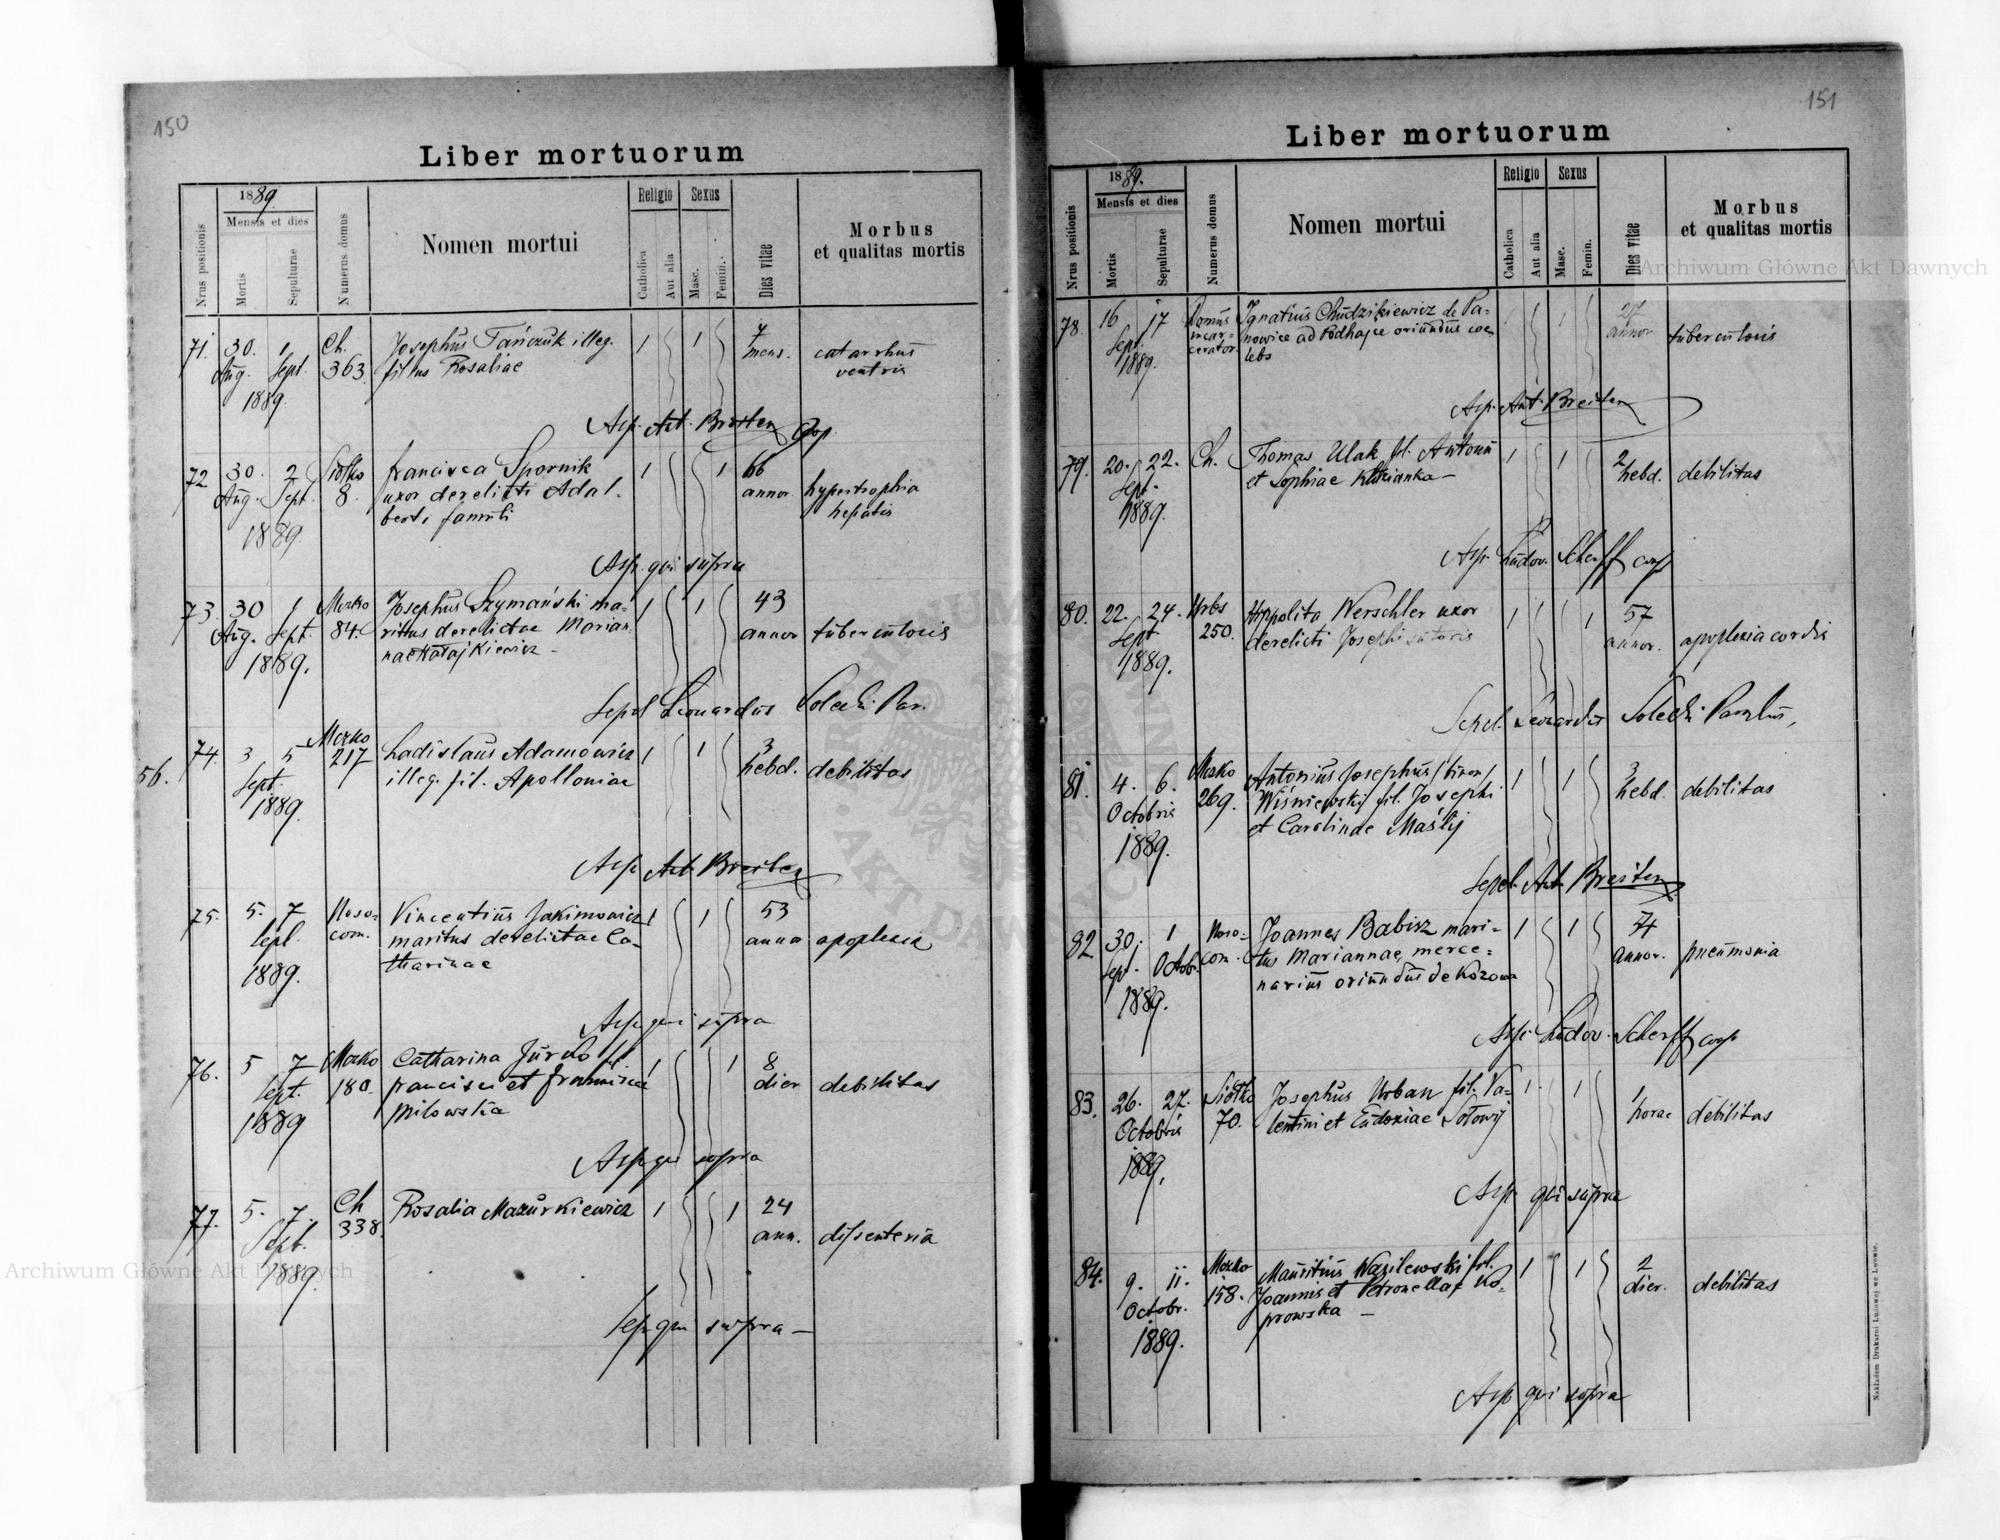 150
Liber mortuorum
Nrus positionis
1889.
Mensis et dies
Mortis
Sepulturae
Numerus domus
Nomen mortui
Religio
Catholica
Aut alia
Sexus
Masc.
Femin.
Dies vitae
Morbus
et qualitas mortis
71. 30. 1 Ch. Josephus Tańczuk illeg. 1 1 7
Aug. Sept. 363. filius Rosaliae mens. catarrhus
1889. ventris
Asp. Ant. Breiten Coop.
72 30. 2 Siołko Francisca Spornik 1 1 66
Aug. Sept. 8. uxor derelicti Adal. annor hypertrophia
1889. berti famuli hepatis
Asp. qui supra
73. 30 1 Mczko Josephus Szymański ma- 1 1 43
Aug. Sept. 84. ritus derelictae Marian annor tuberculosis
1889. nae Hałajkiewicz -
Sepel Leonardus Solecki Par.
56.
74. 3 5 Mczko Ladislaus Adamowicz 1 1 3
Sept. 217 illeg. fil. Apolloniae hebd. debilitas
1889.
Asp. Ant. Breiten
75. 5. 7 Noso- Vincentius Jakimowicz 1 1 53
Sept. com. maritus derelictae Ca- annor apoplexia
1889. tharinae
Asp. qui supra
76. 5 7 Mczko Catharina Jurdo fil 1 1 8
Sept. 180. Francisci et Franciscae dier debilitas
1889 Milowska
Asp. qui supra
77. 5. 7. Ch Rosalia Mazurkiewicz 1 1 24
Sept. 338. ann. dissenteria
1889.
Sep. qui supra -
151
Liber mortuorum
Nrus positionis
1889.
Mensis et dies
Mortis
Sepulturae
Numerus domus
Nomen mortui
Religio
Catholica
Aut alia
Sexus
Masc.
Femin.
Dies vitae
Morbus
et qualitas mortis
78. 16 17 Domus Ignatius Chudzikiewicz de Pa- 1 1 27
Sept. incar- nowice ad Podhajce oriundus coe annor tuberculosis
1889. cerator. lebs
Asp. Ant. Breiten
79. 20. 22. Ch. Thomas Ulak fil. Antonii 1 1 2
Sept. et Sophiae - hebd. debilitas
1889.
Asp. Ludov. Scherff coop
80. 22. 24. Urbs Hyppolita Werschler uxor 1 1 57
Sept 250. derelicti Josephi sutoris annor. apoplexia cordis
1889.
Sepel. Leonardus Solecki Parochus,
81. 4. 6. Mczko Antonius Josephus /binom/ 1 1 3
Octobris 269. Wiśniewski fil. Josephi hebd. debilitas
1889. et Carolinae Maślij
Sepel. Ant. Breiten
82. 30. 1 Noso- Joannes Babisz mari- 1 1 74
Sept. Octob. com. tus Mariannae, merce- annor. pneumonia
1889. narius oriundus de Kozowa
Asp. Ludov. Scherff coop
83. 26. 27. Siołko Josephus Urban fil. Va- 1 1 1
Octobris 70. lentini et Eudoxiae Sołowij horae debilitas
1889.
Asp. qui supra
84. 9. 11. Mczko Mauritius Wasilewski fil. 1 1 2
Octobr. 158. Joannis et Petronellae Ko- dier. debilitas
1889. prowska -
Asp qui supra
Nakładem Drukarni Ludowej we Lwowie.
Archiwum Główne Akt Dawnych
Archiwum Główne Akt Dawnych